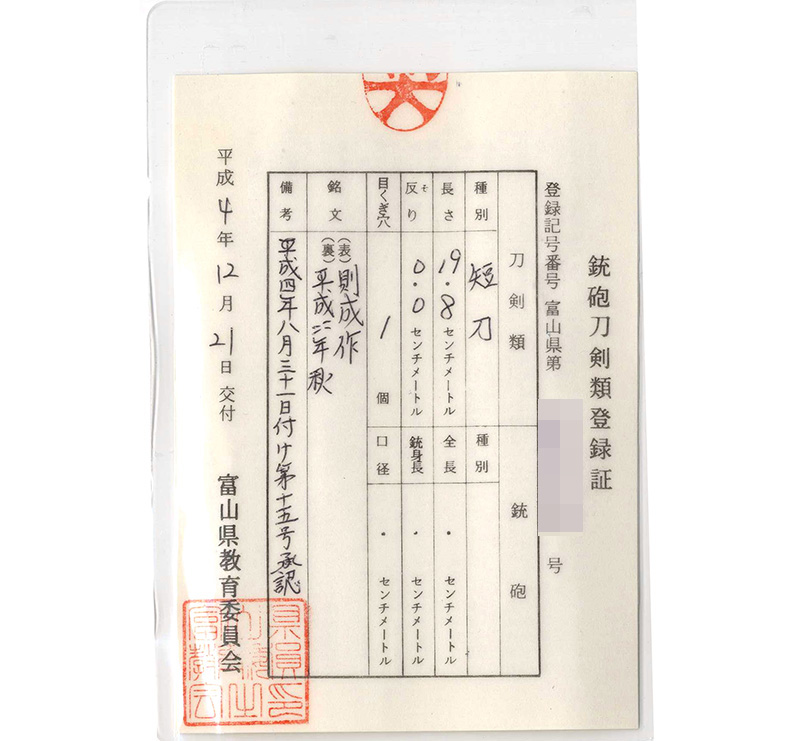 銃砲刀剣類登録証
登録記号番号 富山県第 号
刀剣類
銃砲
種別 短刀
種別
長さ 19.8センチメートル
全長 ・ センチメートル
反り ソモ 0.0センチメートル
銃身長 ・ センチメートル
目くぎ穴 1個
口径 ・ センチメートル
銘文 (表) 則成作
(裏) 平成二年秋
備考 平成四年八月三十一日付け第十五号承認
平成4年12月21日交付
富山県教育委員会